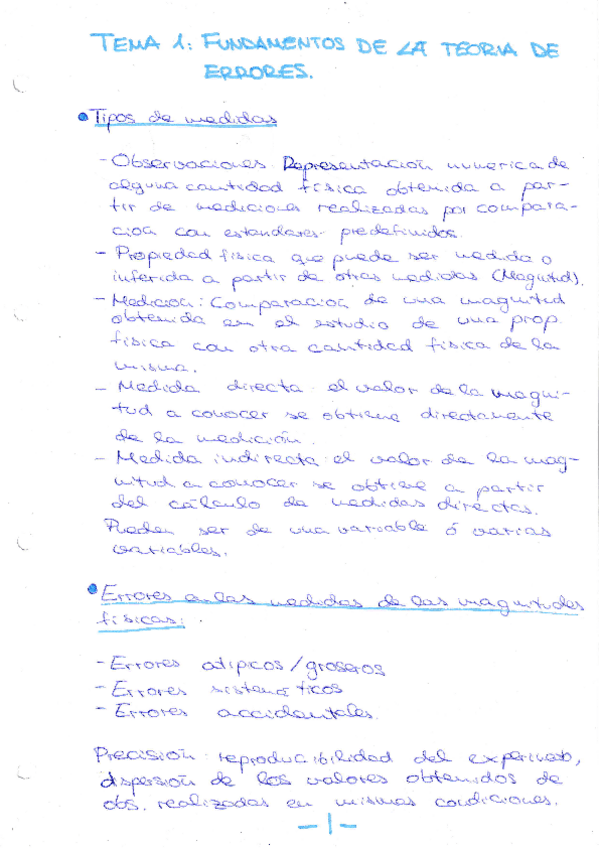 TEMA 1: FUNDAMENTOS DE LA TEORIA DE
ERRORES.
• Tipos de medidas
- Observaciones. Representación numerica de
alguna cantidad física obtenida a par-
tir de mediciones realizadas por compara-
ción con estandares predefinidos.
- Propiedad física que puede ser medida o
inferida a partir de otras medidas (Magnitud).
- Medición: Comparación de una magnitud
obtenida en el estudio de una prop.
física con otra cantidad física de la
misma.
- Medida directa: el valor de la magni-
tud a conocer se obtiene directamente
de la medición.
- Medida indirecta: el valor de la mag-
nitud a conocer se obtiene a partir
del cálculo de medidas directas.
Pueden ser de una variable ó varias
variables.
• Errores en las medidas de las magnitudes
físicas:
- Errores atipicos/groseros
- Errores sistemáticos
- Errores accidentales.
Precisión: reproducibilidad del experimento,
dispersión de los valores obtenidos de
obs. realizadas en mismas condiciones.
-1-